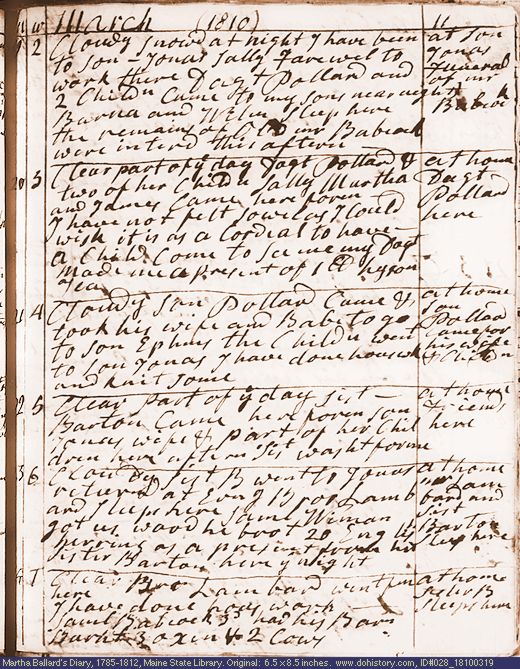 March (1810) 11
2 Cloudy snow at night I have been at son
to son Jonas Sally Farewel to Jonas
work there Dagt Pollard and Funeral
2 Childn Came to my sons near night of mr
Barna and Wife Sleep here Babcok
the remains of Old mr Babcock
were interd this aftern
20 3 Clear part of ye day Dagt Pollard & at home
two of her Childn Sally Martha Dagt
and James Came here foren Pollard
I have not felt so well as I Could here
wish it is as a Cordial to have
a Child Come to See me my Dagt
made me a present of 1 lb hyson
Tea
21 4 Cloudy Son Pollard Came & at home
took his wife and Babe to go son
to son Ephms the Childn went Pollard
to son Jonas I have done housework Came for
and knit some his wife
& Childn
22 5 Clear part of ye day Sist at home
Barton Came here foren son Friends
Jonas wife & part of her Chil here
dren here aftern Sist washt for me
23 6 Cloudy Sist B went to Jonas at home
returnd at Evng Bro Lamb Lam
and Sleeps here Saml bard and
got us wood he brot 20 Eng Sist
herring as a present from his Barton
Sister Barton here ye night Sleep here
7 Clear Bro Lambard went from at home
here Sister B
I have done hous work Sleeps here
Saml Babcock had his Barn
Burnt 3 oxin & 2 Cows
Martha Ballard's Diary, 1785-1812, Maine State Library. Original: 6.5 x 8.5 inches. www.dohistory.com, ID#028_18100319